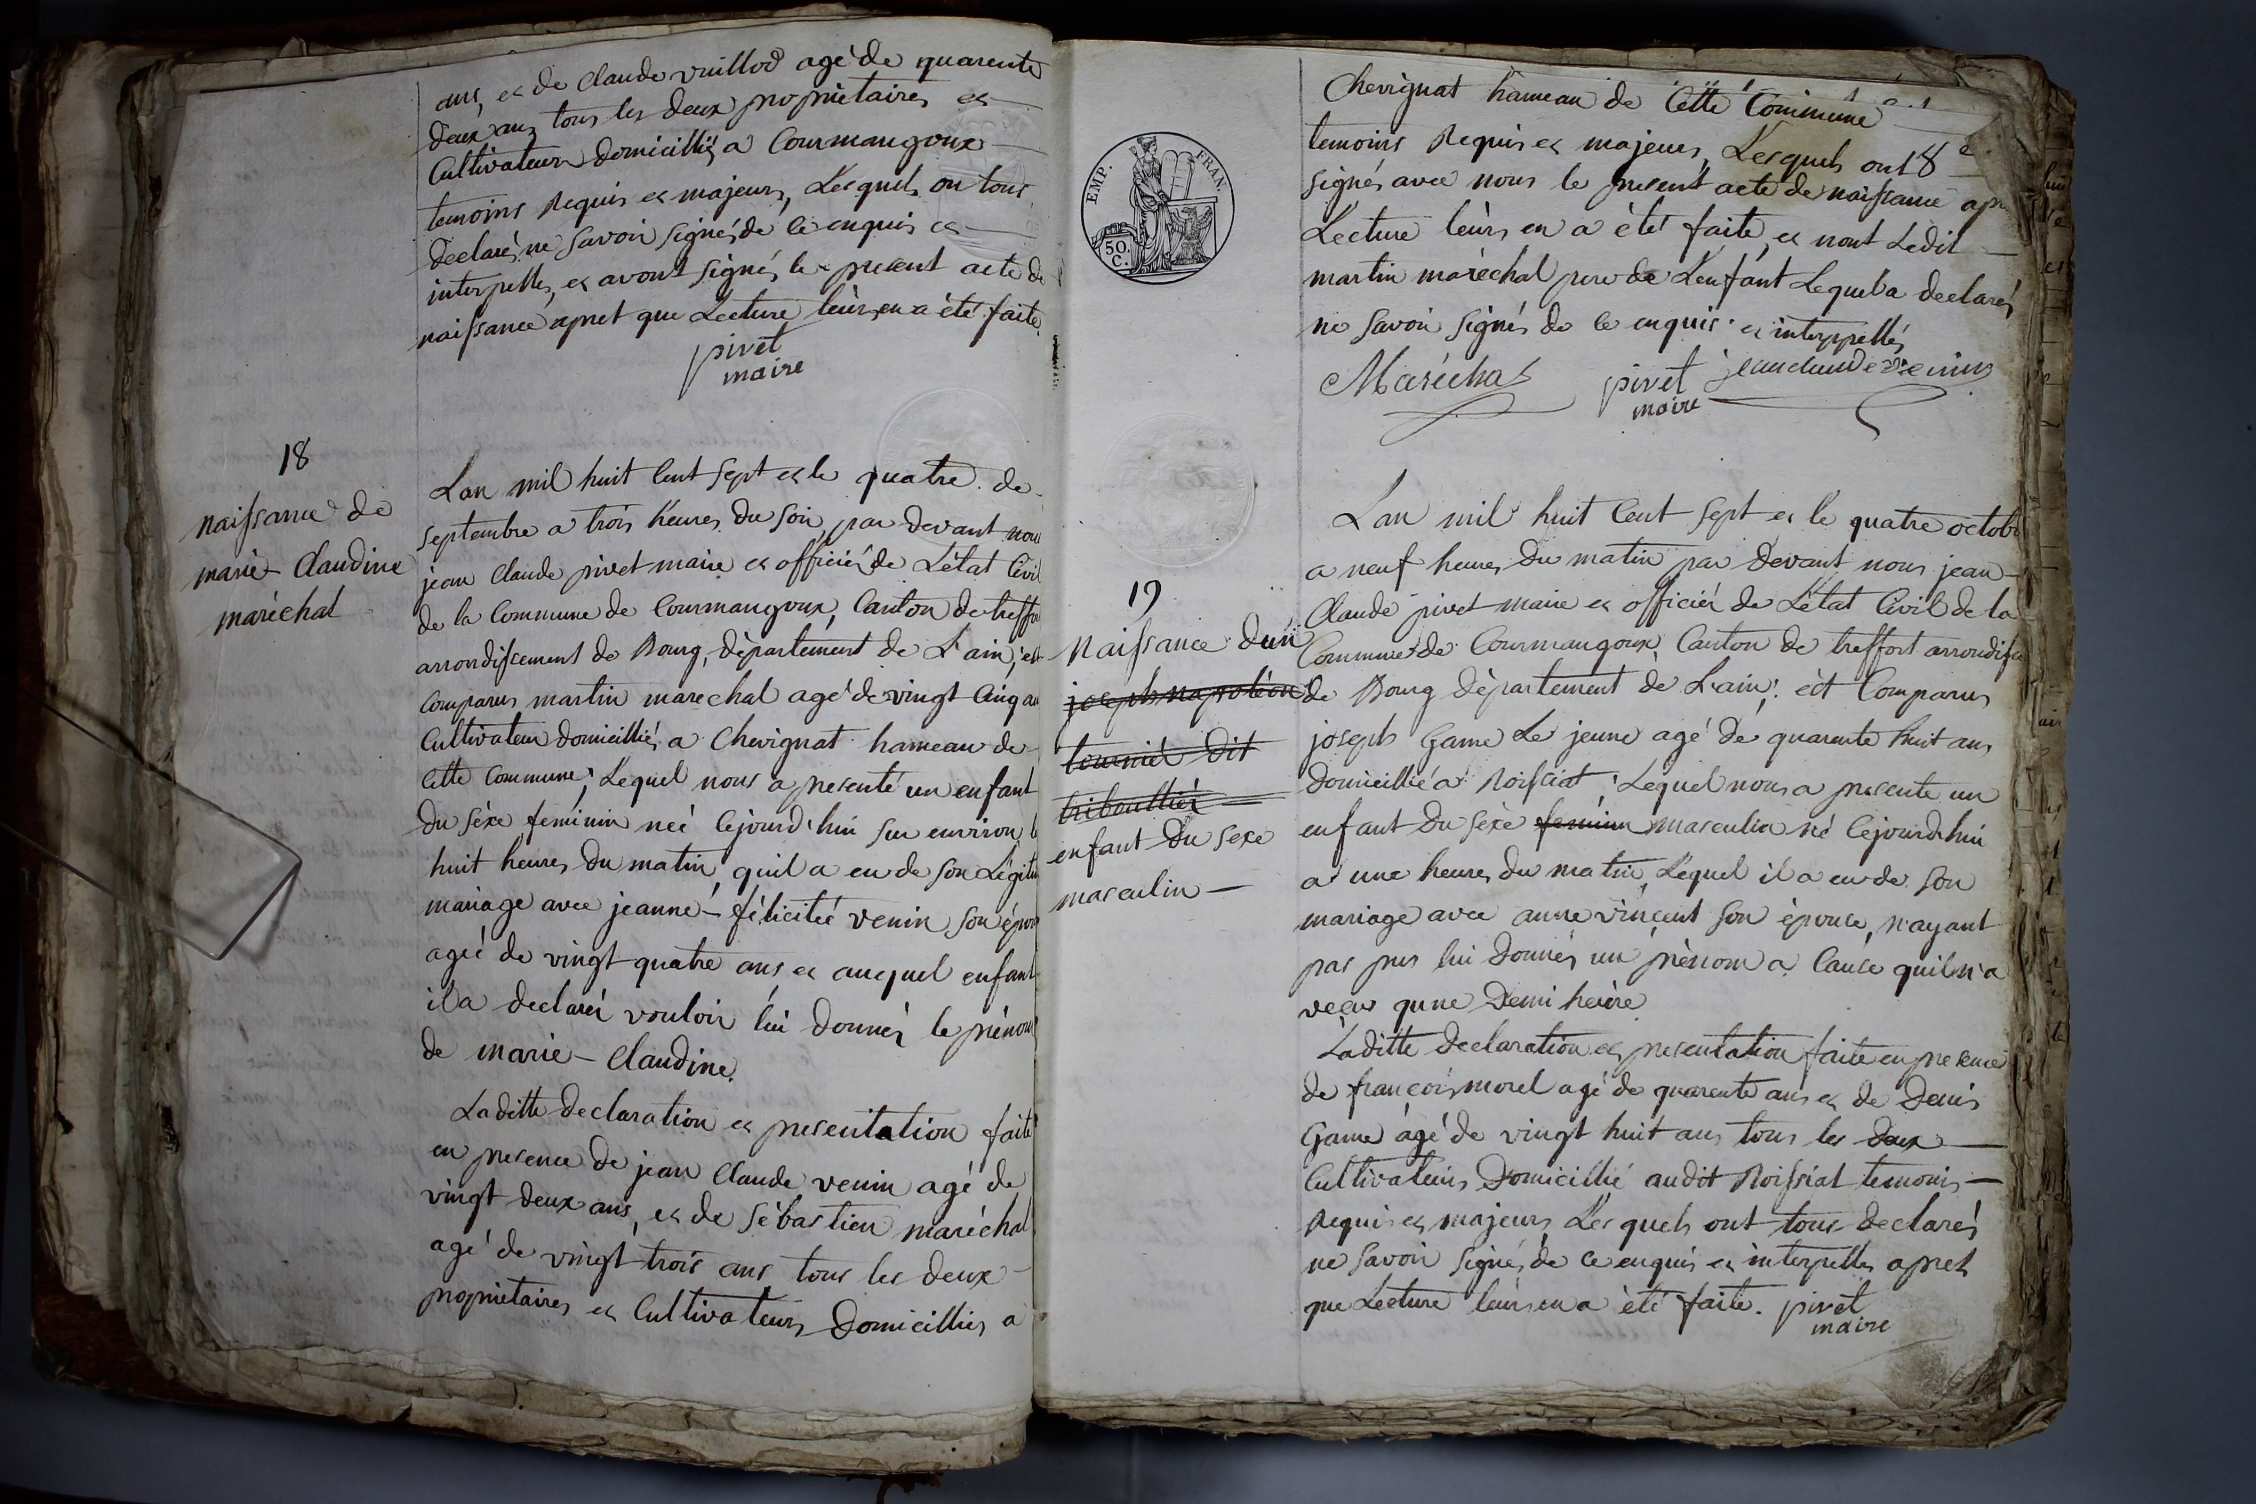 ans, et de Claude vuillod agé de quarente
deux ans tous les deux proprietaires et
Cultivateurs domicilliés a Courmangoux
temoins Requis et majeurs, Lesquels on tous
declarés ne savoir signés de ce enquis et
interpellés, et avont signés le present acte de
naissance apret que Lecture leurs en a été faite.
pivet
maire
18
naissance de
marie - Claudine
maréchal
Lan mil huit Cent Sept et le quatre de
Septembre a trois heures du soir, par devant nous
jean Claude pivet maire et officiér de L'état Civil
de la Commune de Courmangoux, Canton de treffor
arrondissement de Bourg, département de L'ain; est
Comparus martin marechal agé de vingt Cinq an
Cultivateur domicilliés a Chevignat hameau de
Cette Commune; Lequel nous a presenté un enfant
du séxe féminin néé Cejourd'hui sur environ l
huit heures du matin, quil a eu de son Légitim
mariage avec jeanne - félicitéé venin son épou
agéé de vingt quatre ans et auquel enfant
il a declaréi vouloir lui donnér le prénom
de marie - Claudine.
Laditte declaration et presentation faite
en presence de jean Claude venin agé de
vingt deux ans, et de Sébastien maréchal
agé de vingt trois ans tous les deux
proprietaires et Cultivateurs Domicilliés a
EMP. FRAN.
50
C.
Chevignat hameau de Cette Commune
temoins Requis et majeurs, Lesquels ont
signés avec nous le present acte de naissance apr
Lecture leurs en a étés faite, et nont Ledit
martin maréchal pere de L'enfant Lequel a declarés
ne savoir signés de ce enquis et interppellés
Maréchal pivet jean claude venin
maire
19
Naissance dun
joseph napoléon
tournier dit
tribouillier
enfant du sexe
masculin
Lan mil huit Cent Sept et le quatre octob
a neuf heures du matin par devant nous jean
Claude pivet maire et officiér de L'état Civil de la
Commune de Courmangoux Canton de treffort arrondisse
de Bourg département de L'ain; èst Comparus
joseph Game Le jeune agé de quarente huit ans
domicillié a Roissiat; Lequel nous a presente un
enfant du séxe feminin masculin né Cejourd'hui
a une heures du matin, Lequel il a eu de son
mariage avec anne vinçent son épouse, n'ayant
pas pus lui donnés un prénom a Cause quil n'a
veçus qune Demi heure
Laditte declaration et presentation faite en presence
de françois morel agé de quarente ans et de Denis
Game agé de vingt huit ans tous les deux
Cultivateurs Domicillié audit Roissiat temoins
Requis et majeurs Lesquels ont tous declarés
ne savoir signés de ce enquis et interpellés apret
que Lecture leurs en a été faite. pivet
maire